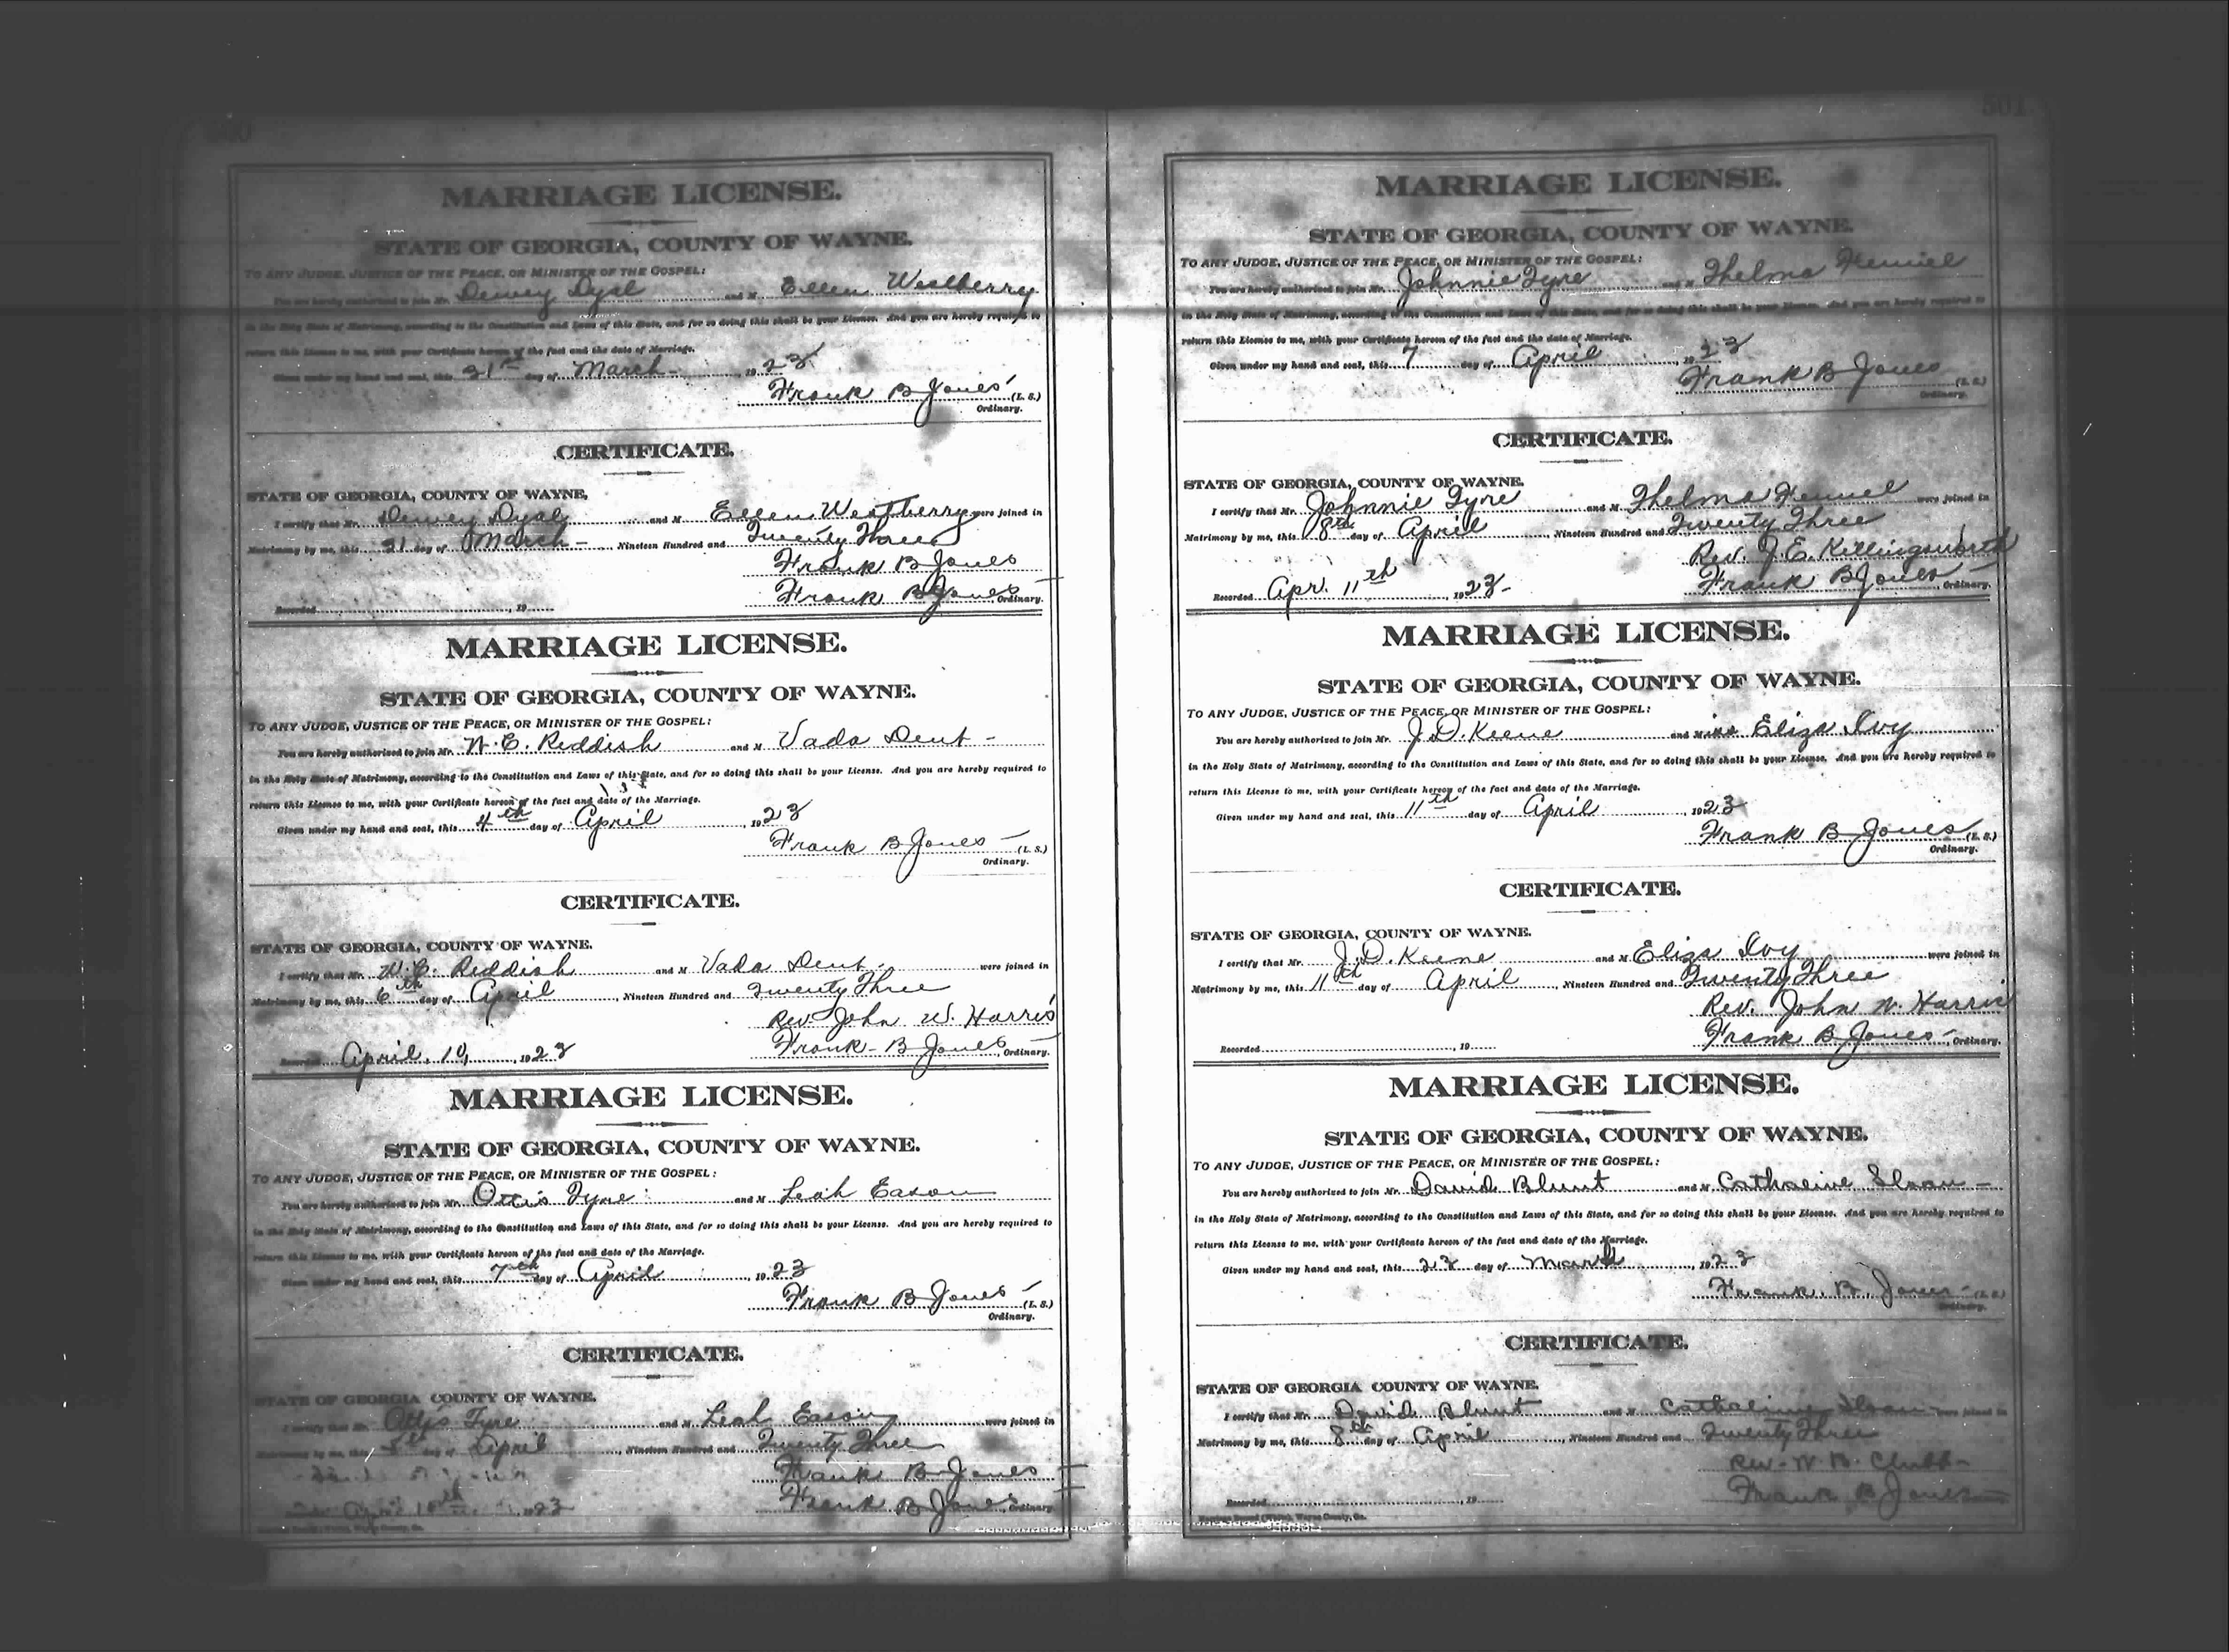 500
MARRIAGE LICENSE.
STATE OF GEORGIA, COUNTY OF WAYNE.
TO ANY JUDGE, JUSTICE OF THE PEACE, OR MINISTER OF THE GOSPEL:
You are hereby authorized to join Mr. Dewey Dyal and M Ellen Westberry
in the Holy State of Matrimony, according to the Constitution and Laws of this State, and for so doing this shall be your License. And you are hereby required to
return this License to me, with your Certificate hereon of the fact and the date of Marriage.
Given under my hand and seal, this 21st day of March - , 1923
Frank B Jones (L. S.)
Ordinary.
CERTIFICATE.
STATE OF GEORGIA, COUNTY OF WAYNE,
I certify that Mr. Dewey Dyal and M Ellen Westberry were joined in
Matrimony by me, this 21 day of March - , Nineteen Hundred and Twenty Three
Frank B Jones
Recorded , 19 Frank B Jones , Ordinary.
MARRIAGE LICENSE.
STATE OF GEORGIA, COUNTY OF WAYNE.
TO ANY JUDGE, JUSTICE OF THE PEACE, OR MINISTER OF THE GOSPEL:
You are hereby authorized to join Mr. W. C. Reddish and M Vada Dent -
in the Holy State of Matrimony, according to the Constitution and Laws of this State, and for so doing this shall be your License. And you are hereby required to
return this License to me, with your Certificate hereon of the fact and date of the Marriage.
Given under my hand and seal, this 4th day of April , 1923
Frank B Jones (L. S.)
Ordinary.
CERTIFICATE.
STATE OF GEORGIA, COUNTY OF WAYNE.
I certify that Mr. W. C. Reddish and M Vada Dent - were joined in
Matrimony by me, this 6th day of April , Nineteen Hundred and Twenty Three
Rev. John W. Harris
Recorded April 10, , 1923 Frank - B Jones , Ordinary.
MARRIAGE LICENSE.
STATE OF GEORGIA, COUNTY OF WAYNE.
TO ANY JUDGE, JUSTICE OF THE PEACE, OR MINISTER OF THE GOSPEL:
You are hereby authorized to join Mr. Ottis Tyre and M Leah Eason
in the Holy State of Matrimony, according to the Constitution and Laws of this State, and for so doing this shall be your License. And you are hereby required to
return this License to me, with your Certificate hereon of the fact and date of the Marriage.
Given under my hand and seal, this 7th day of April , 1923
Frank B Jones (L. S.)
Ordinary.
CERTIFICATE.
STATE OF GEORGIA COUNTY OF WAYNE.
I certify that Mr. Ottis Tyre and M Leah Eason were joined in
Matrimony by me, this day of April , Nineteen Hundred and Twenty Three
Frank B Jones
April 10th , 1923 Frank B Jones , Ordinary
501
MARRIAGE LICENSE.
STATE OF GEORGIA, COUNTY OF WAYNE.
TO ANY JUDGE, JUSTICE OF THE PEACE, OR MINISTER OF THE GOSPEL:
You are hereby authorized to join Mr. Johnnie Tyre and M Thelma
in the Holy State of Matrimony, according to the Constitution and Laws of this State, and for so doing this shall be your License. And you are hereby required to
return this License to me, with your Certificate hereon of the fact and the date of Marriage.
Given under my hand and seal, this 7 day of April , 1923
Frank B Jones (L. S.)
Ordinary.
CERTIFICATE.
STATE OF GEORGIA, COUNTY OF WAYNE.
I certify that Mr. Johnnie Tyre and M Thelma were joined in
Matrimony by me, this 8th day of April , Nineteen Hundred and Twenty Three
Rev. J. E. Killingsworth
Recorded Apr. 11th , 1923 - Frank B Jones , Ordinary.
MARRIAGE LICENSE.
STATE OF GEORGIA, COUNTY OF WAYNE.
TO ANY JUDGE, JUSTICE OF THE PEACE, OR MINISTER OF THE GOSPEL:
You are hereby authorized to join Mr. J. D. Keene and Miss Eliza Ivy
in the Holy State of Matrimony, according to the Constitution and Laws of this State, and for so doing this shall be your License. And you are hereby required to
return this License to me, with your Certificate hereon of the fact and date of the Marriage.
Given under my hand and seal, this 11th day of April , 1923
Frank B Jones (L. S.)
Ordinary.
CERTIFICATE.
STATE OF GEORGIA, COUNTY OF WAYNE.
I certify that Mr. J. D. Keene and M Eliza Ivy were joined in
Matrimony by me, this 11th day of April , Nineteen Hundred and Twenty Three
Rev. John W. Harris
Recorded , 19 Frank B Jones - , Ordinary.
MARRIAGE LICENSE.
STATE OF GEORGIA, COUNTY OF WAYNE.
TO ANY JUDGE, JUSTICE OF THE PEACE, OR MINISTER OF THE GOSPEL:
You are hereby authorized to join Mr. David Blunt and M Cathaline Sloan -
in the Holy State of Matrimony, according to the Constitution and Laws of this State, and for so doing this shall be your License. And you are hereby required to
return this License to me, with your Certificate hereon of the fact and date of the Marriage.
Given under my hand and seal, this 23 day of March , 1923
Frank. B. Jones - (L. S.)
Ordinary.
CERTIFICATE.
STATE OF GEORGIA COUNTY OF WAYNE.
I certify that Mr. David Blunt and M Cathaline Sloan were joined in
Matrimony by me, this 8th day of April , Nineteen Hundred and Twenty Three
Rev. W. B. Clubb -
Recorded , 19 Frank B Jones